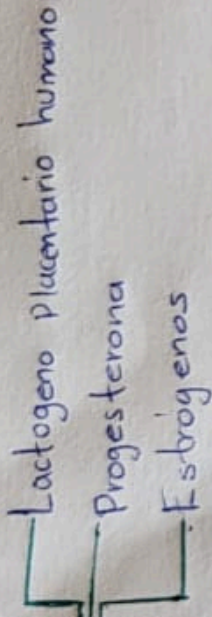 Lactogeno placentario humano
Progesterona
Estrógenos